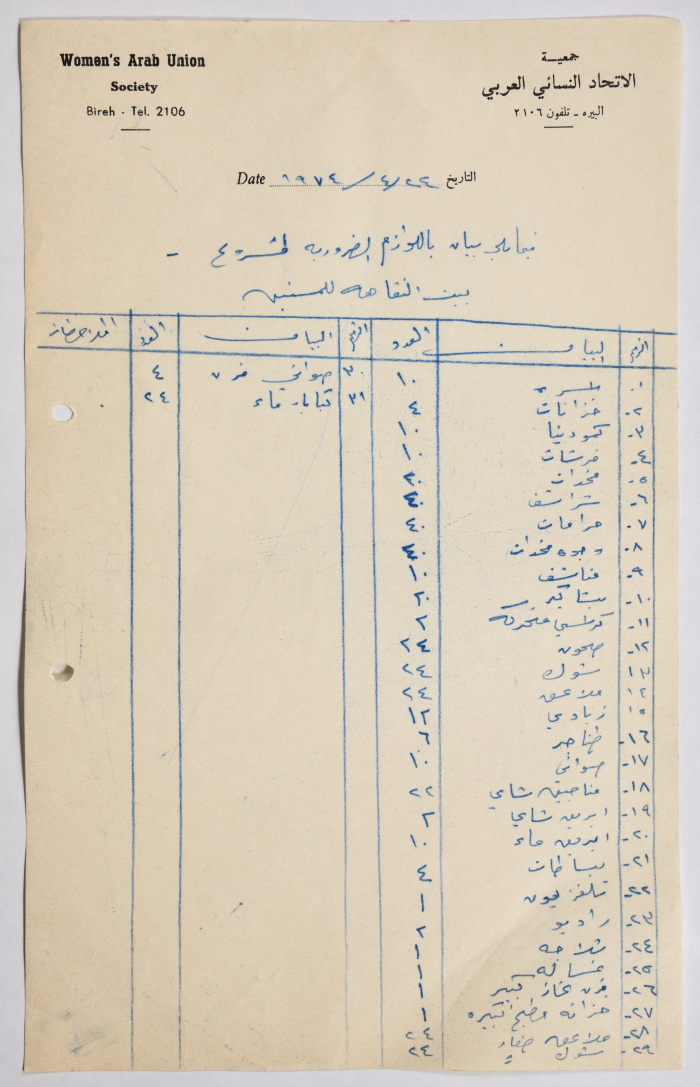 Women's Arab Union
Society
Bireh - Tel. 2106
جمعية
الاتحاد النسائي العربي
البيره - تلفون ٢١٠٦
Date ١٩٧٤/٤/٢٤ التاريخ
فيما يلي بيان باللوازم الضروريه لمشروع -
بيت النقاهه للمسنين
الرقم البيان العدد الرقم البيان العدد
١- اسره ١٠
٢- خزانات ٤
٣- كمودينا ١٠
٤- فرشات ١٠
٥- مخدات
٦- شراشف ٤٠
٧- حرامات ٤٠
٨- وجوه مخدات ٤٠
٩- مناشف ١٠
١٠- ٢٠
١١- كراسي متحركه ٢
١٢- صحون ٢٤
١٣ شوك ٢٤
١٤ ملاعق ٢٤
١٥ زبادي ١٢
١٦- طناجر ٦
١٧- صواني ١٠
١٨- فناجين شاي ٢٢
١٩- ابريق شاي ٢
٢٠- ابريق ماء ١٠
٢١- بساطات ٤
٢٢- تلفزيون ١
٢٣- راديو ٢
٢٤- ثلاجه ١
٢٥- غساله ١
٢٦- فرن غاز كبير ١
٢٧- خزانه مطبخ كبيره ١
٢٨- ملاعق صغار ٢٤
٢٩- شوك صغار ٢٤
٣٠ صواني فرن ٤
٣١ كبايات ماء ٢٤